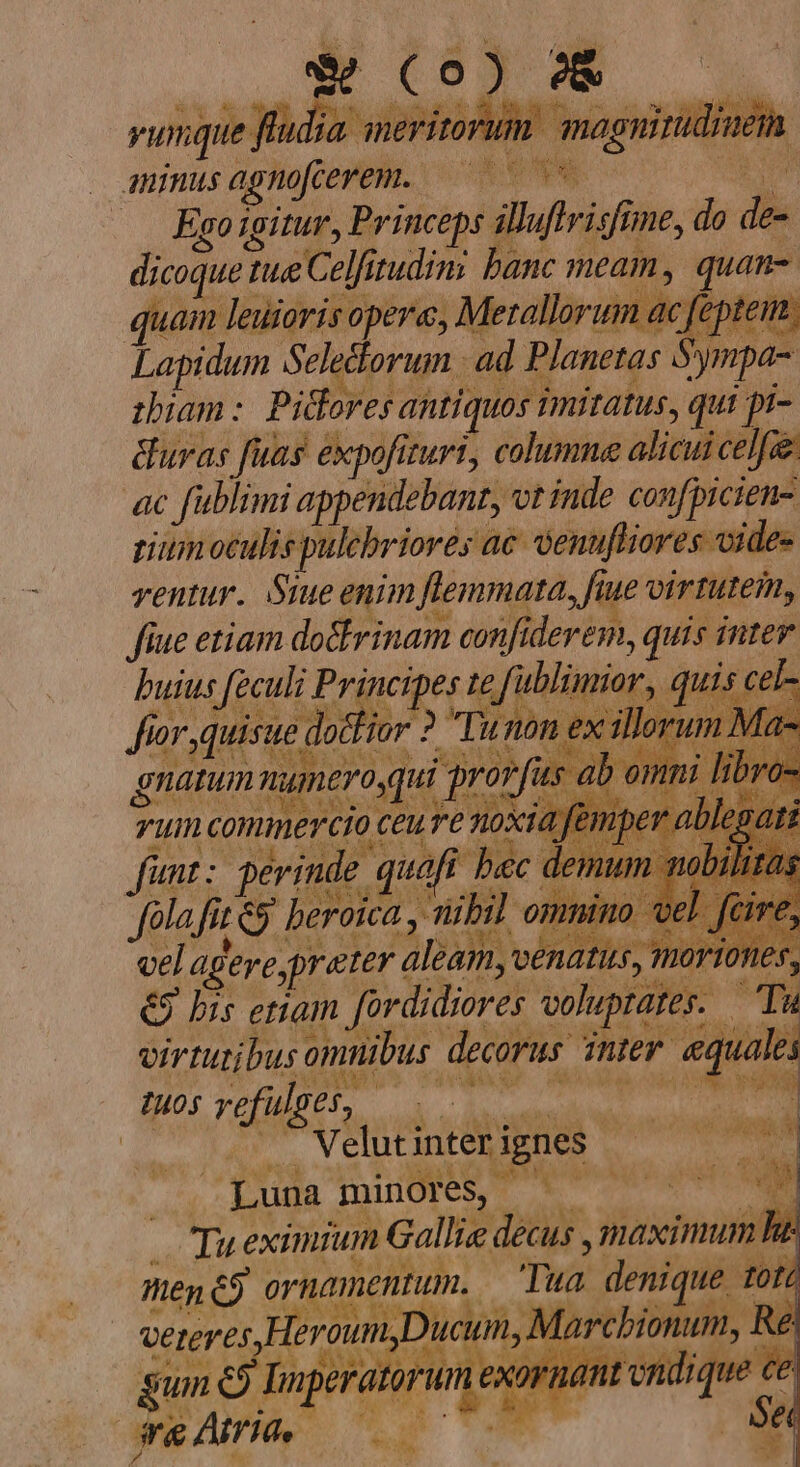 (o)
rumque ſtudia meritorum magnitudinem
minus agnoſcerem.
Ego igitur, Princeps illuſtrisſime, do de-
dicoque tuæ Celſitudini hanc meam, quan-
quam leuioris operæ, Metallorum ac ſeptem
Lapidum Selectorum ad Planetas Sympa-
thiam: Pictores antiquos imitatus, qui pi-
cturas ſuas expoſituri, columnæ alicui celſæ
ac ſublimi appendebant, vt inde conſpicien-
tium oculis pulchriores ac venuſtiores vide-
rentur. Siue enim ſtemmata, ſiue virtutem,
ſiue etiam doctrinam conſiderem, quis inter
huius ſeculi Principes te ſublimior, quis cel-
ſior, quisue doctior? Tu non ex illorum Ma-
gnatum numero, qui prorſus ab omni libro-
rum commercio ceu re noxia ſemper ablegati
ſunt: perinde quaſi hæc demum nobilitas
ſola ſit & heroica, nihil omnino vel ſcire,
vel agere, præter aleam, venatus, moriones,
& his etiam ſordidiores voluptates. Tu
virtutibus omnibus decorus inter æquales
tuos refulges,
Velut inter ignes
Luna minores,
Tu eximium Galliæ decus, maximum lu-
men & ornamentum. Tua denique tota
veteres, Heroum, Ducum, Marchionum, Re-
gum & Imperatorum exornant vndique ce-
ræ Atria.
Sed